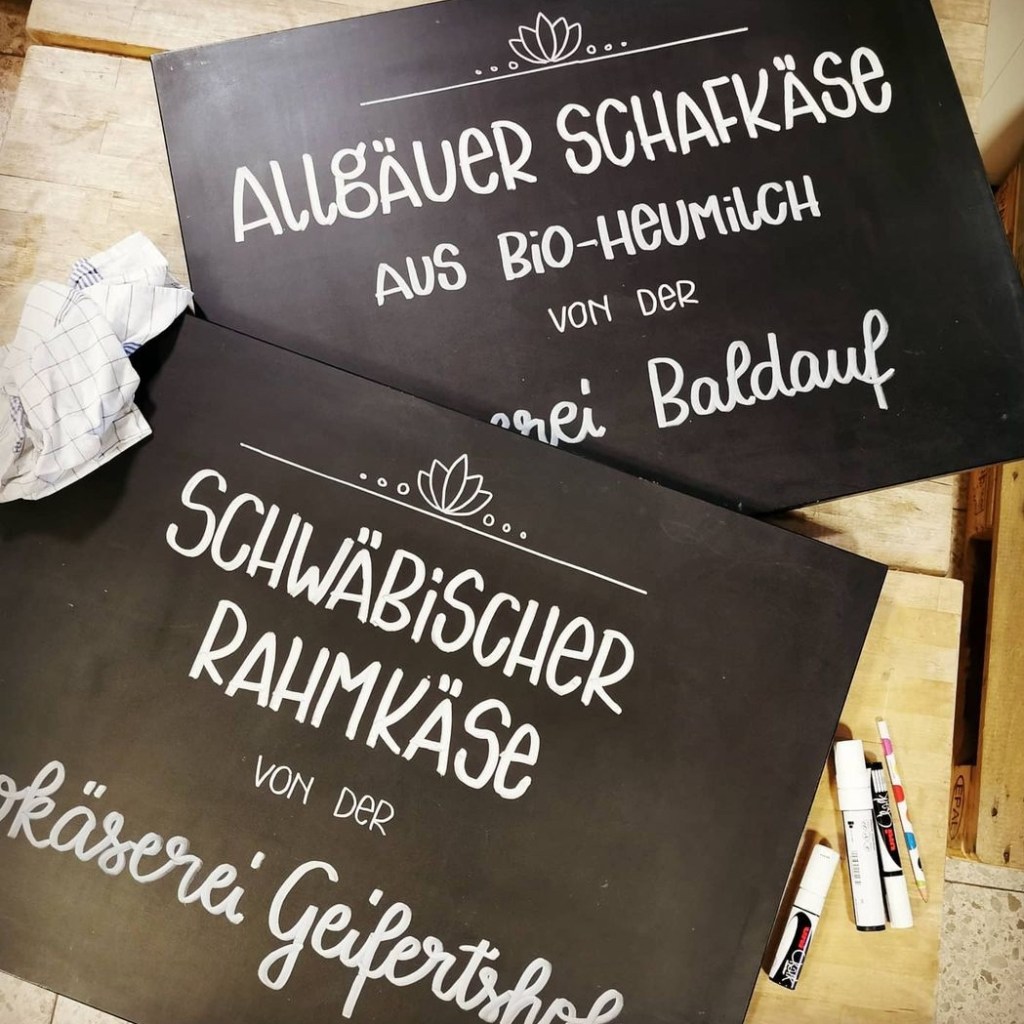 ALLGÄUER SCHAFKÄSE
AUS BIO-HEUMILCH
VON DER
erei Baldauf
SCHWÄBISCHER
RAHMKÄSE
VON DER
okäserei Geifertshof
uni Chalk
uni Chalk
EPAL